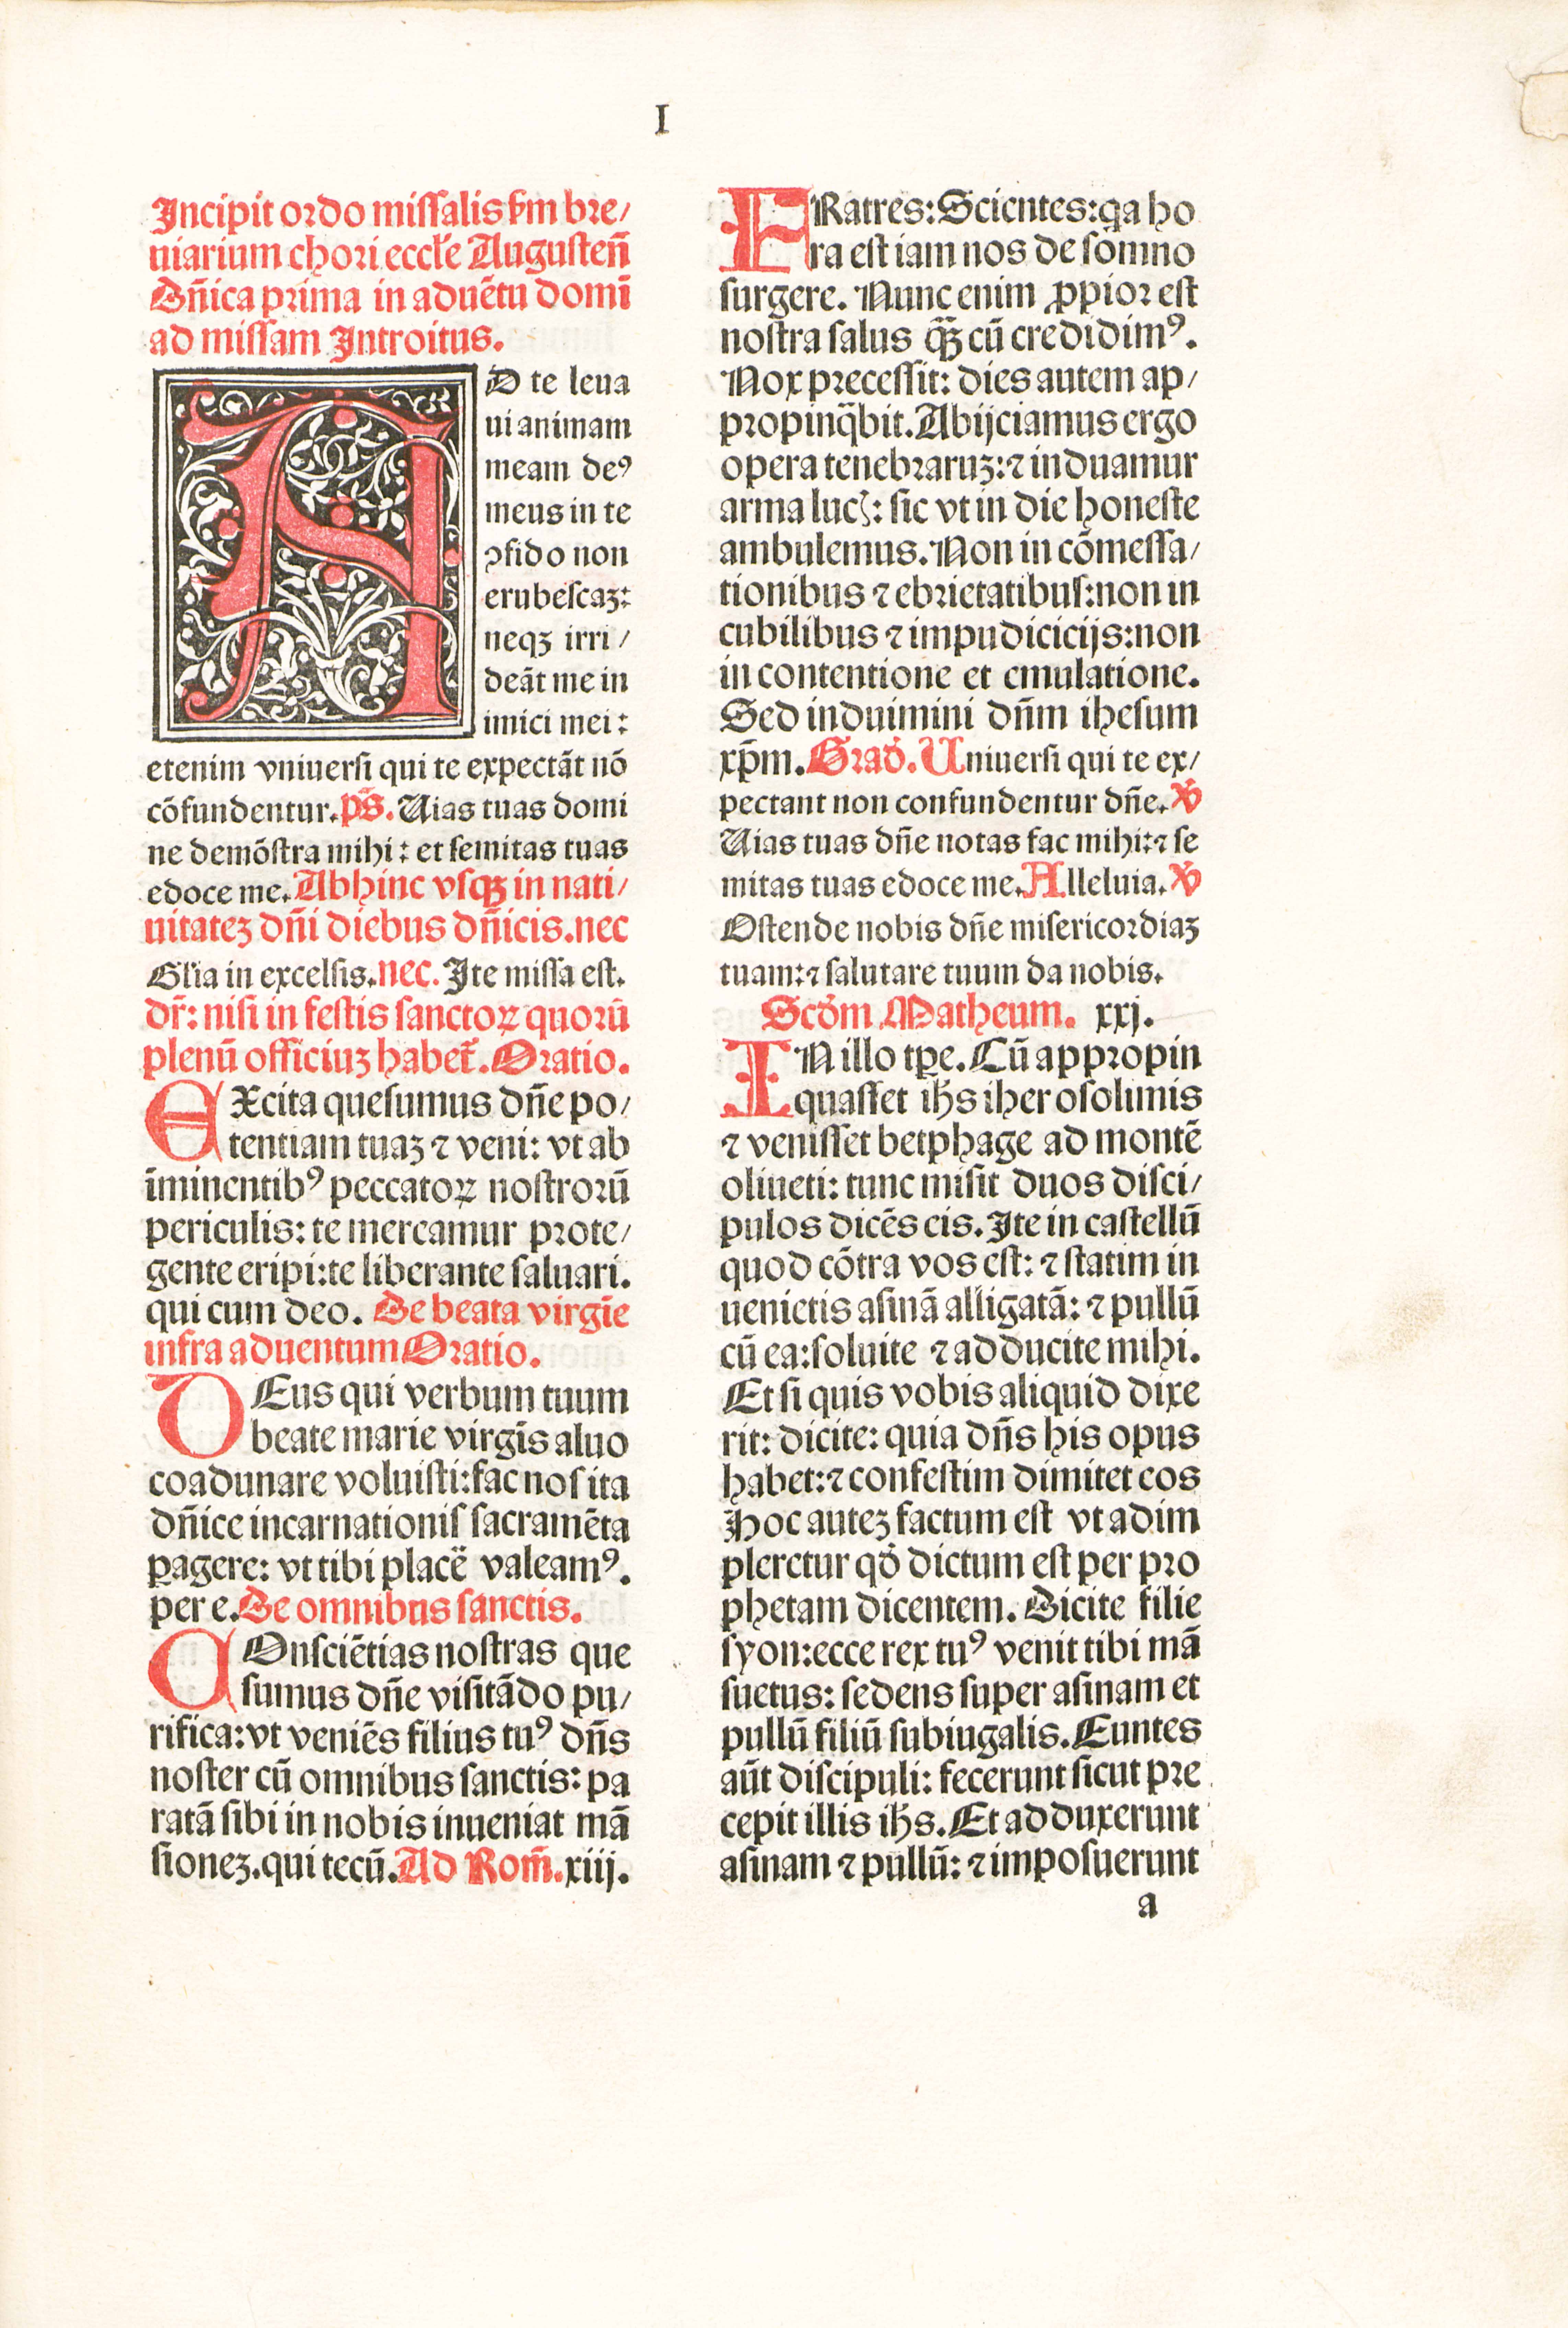 I
Incipit ordo missalis scd'm bre/
uiarium chori eccl'e Augusteñ
Dñica prima in aduētu domī
ad missam Introitus.
AD te leua
ui animam
meam deꝰ
meus in te
ꝯfido non
erubescaꝫ:
neqꝫ irri/
deāt me in
imici mei:
etenim vniuersi qui te expectāt nō
cōfundentur. p̄s. Uias tuas domi
ne demōstra mihi: et semitas tuas
edoce me. Abhinc vsqꝫ in nati/
uitateꝫ dñi diebus dñicis. nec
Gl'ia in excelsis. nec. Ite missa est.
dr̄: nisi in festis sanctoꝝ quorū
plenū officiuꝫ habet̄. Oratio.
EXcita quesumus dñe po/
tentiam tuaꝫ ⁊ veni: vt ab
īminentibꝰ peccatoꝝ nostrorū
periculis: te mereamur prote/
gente eripi: te liberante saluari.
qui cum deo. De beata virgīe
infra aduentum Oratio.
DEus qui verbum tuum
beate marie virgīs aluo
coadunare voluisti: fac nos ita
dñice incarnationis sacramēta
ꝑagere: vt tibi placē valeamꝰ.
per e. De omnibus sanctis.
COnsciētias nostras que
sumus dñe visitādo pu/
rifica: vt veniēs filius tuꝰ dñs
noster cū omnibus sanctis: pa
ratā sibi in nobis inueniat mā
sioneꝫ. qui tecū. Ad Rom̄. xiij.
FRatres: Scientes: qa ho
ra est iam nos de somno
surgere. Nunc enim ꝓpior est
nostra salus q̄ꝫ cū credidimꝰ.
Nox precessit: dies autem ap/
propinq̄bit. Abijciamus ergo
opera tenebraruꝫ: ⁊ induamur
arma lucꝭ: sic vt in die honeste
ambulemus. Non in cōmessa/
tionibus ⁊ ebrietatibus: non in
cubilibus ⁊ impudicicijs: non
in contentione et emulatione.
Sed induimini dñm ihesum
xp̄m. Grad̓. Uniuersi qui te ex/
pectant non confundentur dñe. ℣
Uias tuas dñe notas fac mihi: ⁊ se
mitas tuas edoce me. Alleluia. ℣
Ostende nobis dñe misericordiaꝫ
tuam: ⁊ salutare tuum da nobis.
Scd̓m Matheum. xxj.
IN illo tp̄e. Cū appropin
quasset ihs iherosolimis
⁊ venisset betphage ad montē
oliueti: tunc misit duos disci/
pulos dicēs eis. Ite in castellū
quod cōtra vos est: ⁊ statim in
uenietis asinā alligatā: ⁊ pullū
cū ea: soluite ⁊ adducite mihi.
Et si quis vobis aliquid dixe
rit: dicite: quia dñs his opus
habet: ⁊ confestim dimitet eos
Hoc auteꝫ factum est vt adim
pleretur qd̓ dictum est per pro
phetam dicentem. Dicite filie
syon: ecce rex tuꝰ venit tibi mā
suetus: sedens super asinam et
pullū filiū subiugalis. Euntes
aūt discipuli: fecerunt sicut pre
cepit illis ihs. Et adduxerunt
asinam ⁊ pullū: ⁊ imposuerunt
a